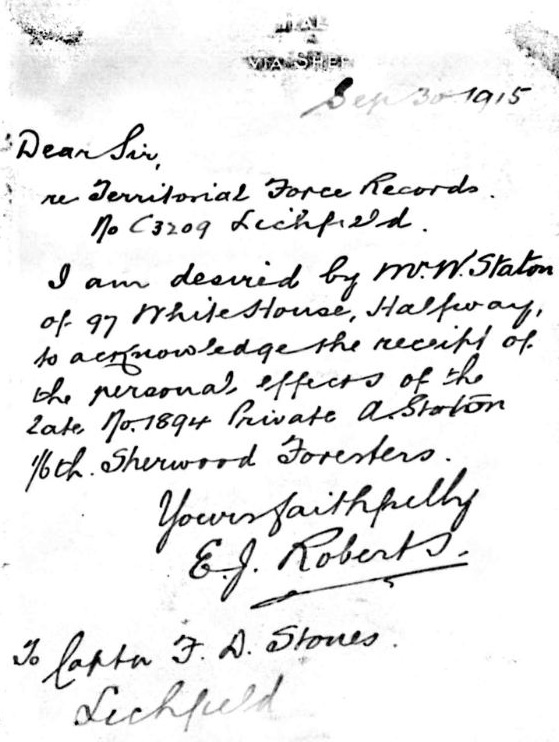 VIA SHEF
Sep 30 1915
Dear Sir,
re Territorial Force Records.
No C3209 Lichfield.
I am desired by Mr. W. Staton
of 97 White House, Halfway,
to acknowledge the receipt of
the personal effects of the
late No. 1894 Private A. Staton
1/6th. Sherwood Foresters.
Yours faithfully
E. J. Roberts.
To Captn F. D. Stones.
Lichfield